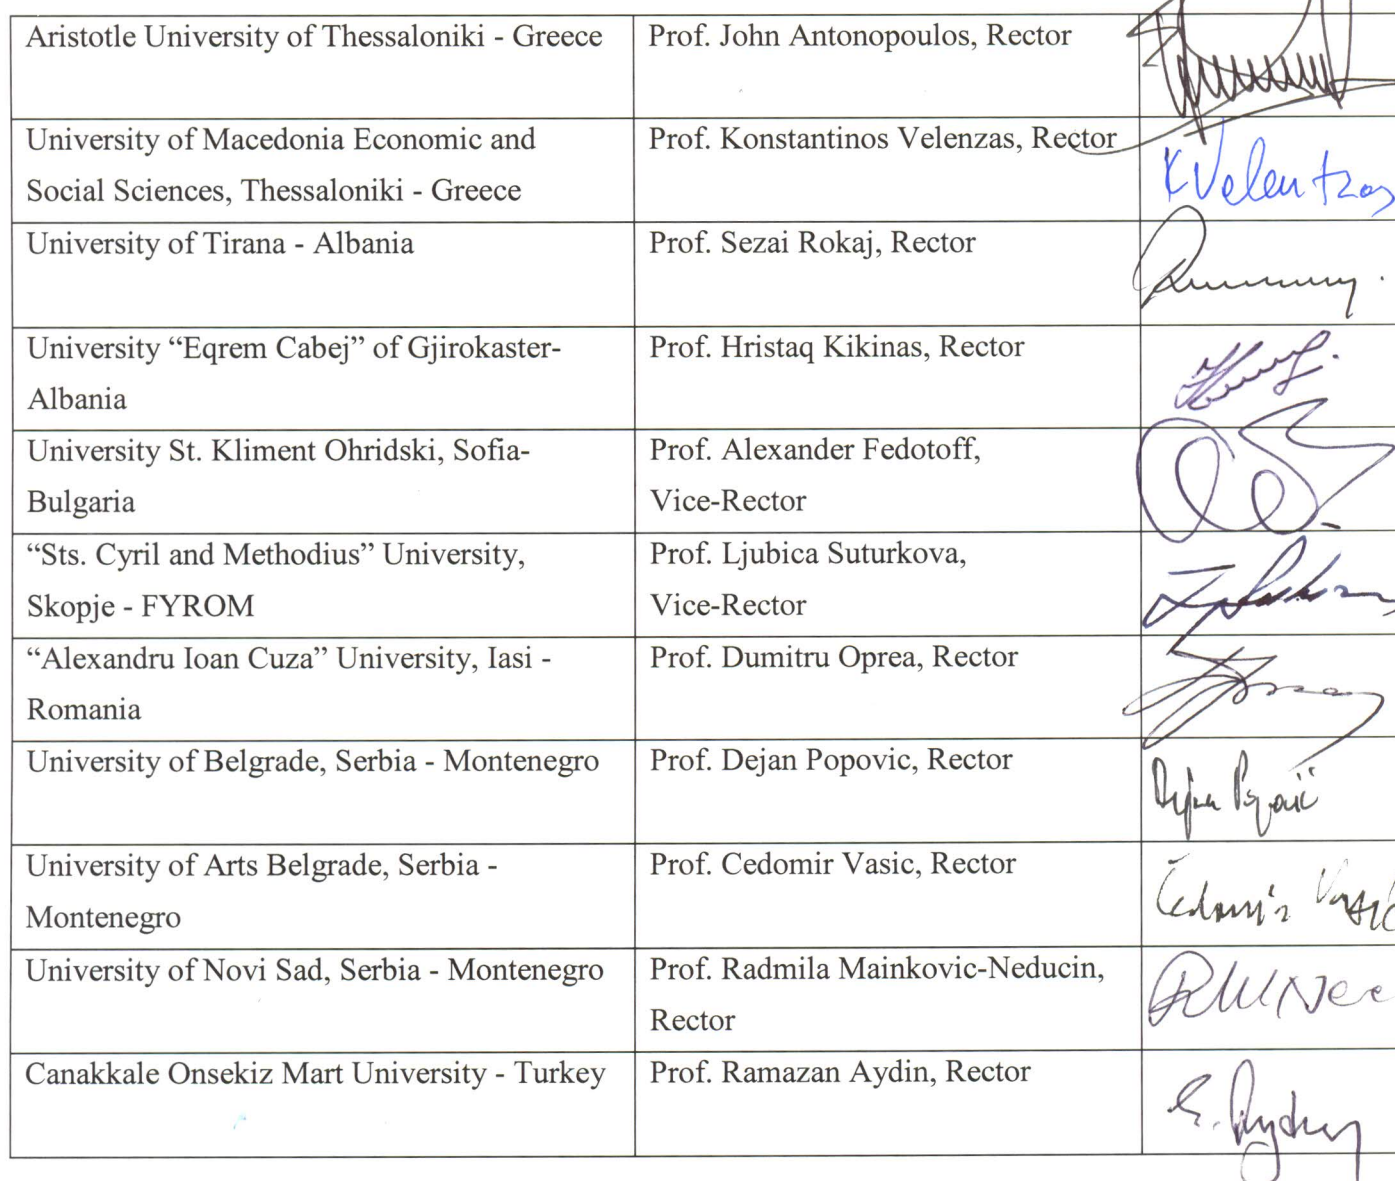 Aristotle University of Thessaloniki - Greece
Prof. John Antonopoulos, Rector
University of Macedonia Economic and
Social Sciences, Thessaloniki - Greece
Prof. Konstantinos Velenzas, Rector
K Velentzas
University of Tirana - Albania
Prof. Sezai Rokaj, Rector
University “Eqrem Cabej” of Gjirokaster-
Albania
Prof. Hristaq Kikinas, Rector
University St. Kliment Ohridski, Sofia-
Bulgaria
Prof. Alexander Fedotoff,
Vice-Rector
“Sts. Cyril and Methodius” University,
Skopje - FYROM
Prof. Ljubica Suturkova,
Vice-Rector
“Alexandru Ioan Cuza” University, Iasi -
Romania
Prof. Dumitru Oprea, Rector
University of Belgrade, Serbia - Montenegro
Prof. Dejan Popovic, Rector
University of Arts Belgrade, Serbia -
Montenegro
Prof. Cedomir Vasic, Rector
University of Novi Sad, Serbia - Montenegro
Prof. Radmila Mainkovic-Neducin,
Rector
Canakkale Onsekiz Mart University - Turkey
Prof. Ramazan Aydin, Rector